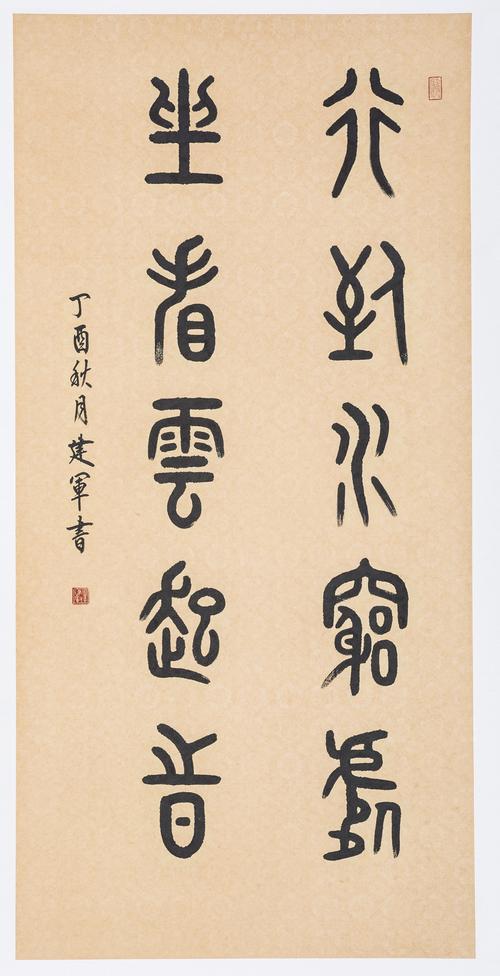 行到水窮處
坐看雲起旹
丁酉秋月建軍書